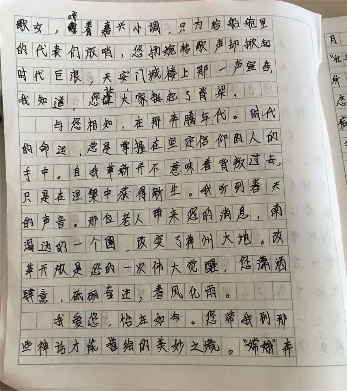 歌女，哼着嘉兴小调，只为给船舱里
的代表们放哨，您拥抱着歌声却掀起
时代巨浪。天安门城楼上那一声宣告，
我知道，您让大家挺起了脊梁。
与您相知，在那奔腾年代。时代
的命运，总是掌握在坚定信仰的人的
手中。自我革新并不意味着背叛过去，
只是在涅槃中获得新生。我听到春天
的声音。那位老人带来您的消息，南
海边的一个圈，改变了神州大地。改
革开放是您的一次伟大觉醒，您潇洒
肆意，砥砺奋进，春风化雨。
我爱您，恰在如今。您带我到那
些神话才能描绘的美妙之境。“嫦娥”奔
月